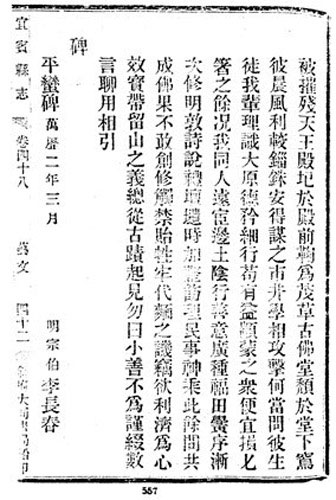 被摧殘天王殿圮於殿前鞠為茂草古佛堂頹於下窩
彼晨風利較錙銖安得謀之市井學相攻擊何當問彼生
徒我輩理識大原德矜細行苟有益顓蒙之衆便宜損匕
箸之餘况我同人遠宦邊土陰行善意廣種福田釁序漸
次修明敦詩說禮壇壝時加 民事神 此餘間共
成佛果不敢創修觸禁貽牲牢代麵之譏竊欲利濟為心
效實帶留山之義總從古蹟起見勿曰小善不為謹綴數
言聊用相引
碑
平蠻碑萬曆二年三月
明宗伯李長春
宜賓縣志
卷四十八
藝文
四十二
557